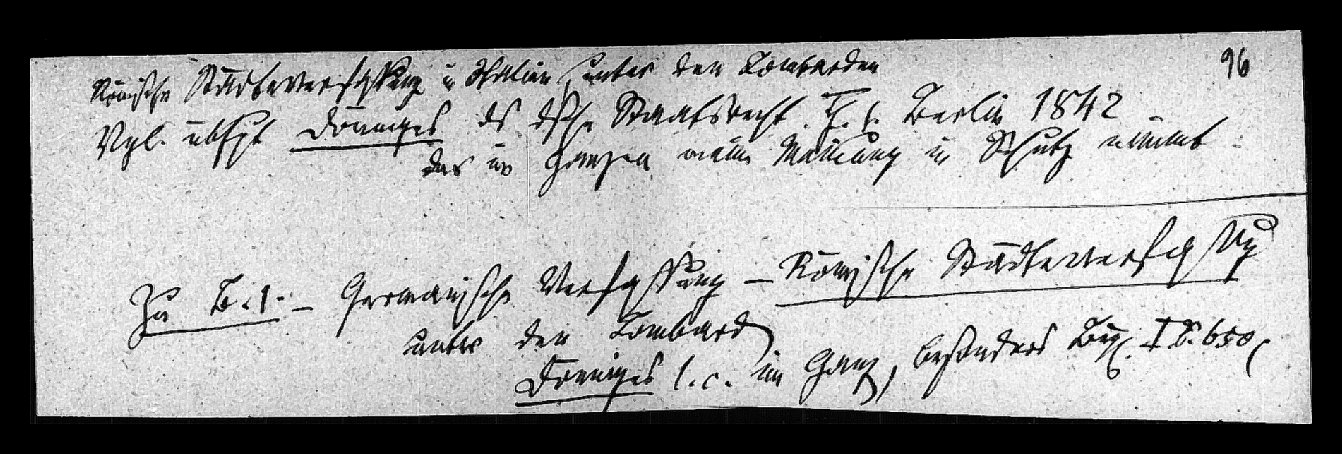 96
Römische Städteverfassung in Italien unter den Lombarden
Vgl. übhpt Dönniges ds dtsche Staatsrecht. Th. 1. Berlin 1842
das im Ganzen meine Meinung in Schutz nimmt.
Zu B. 1. – Germanische Verfassung – Römische Städteverfassung
unter den Lombard
Dönniges l. c. im Ganz, besonders I S. 650